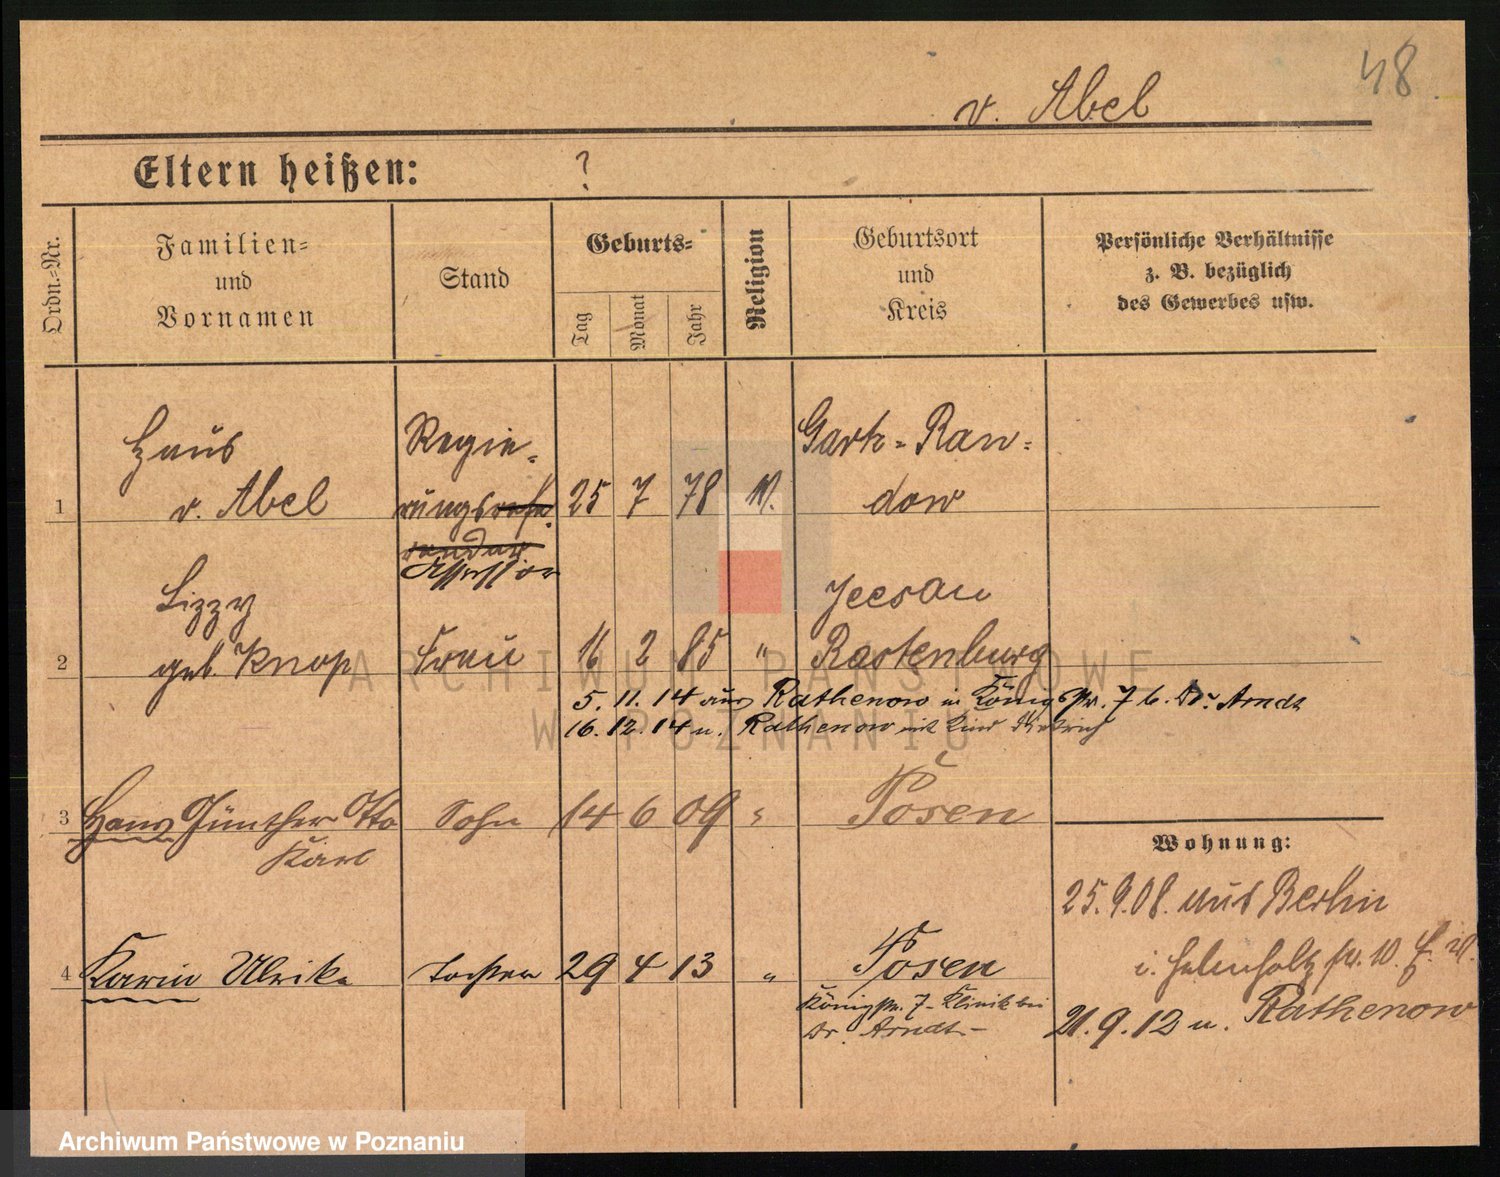 48
v. Abel
Eltern heißen: ?
Ordn.-Nr.
Familien-
und
Vornamen
Stand
Geburts-
Tag
Monat
Jahr
Religion
Geburtsort
und
Kreis
Persönliche Verhältnisse
z. B. bezüglich
des Gewerbes usw.
Hans Regie- Gartz-Ran-
1 v. Abel rungsrefe- 25 7 78 dow
rendar
Assessor
Lizzy
2 geb. Knop Frau 16 2 85 " Rastenburg
5. 11. 14 aus Rathenow in Königstr. 7 b. Dr. Arndt
16. 12. 14 n. Rathenow mit Kind Dietrich
3 Hans Günther Otto Sohn 14 6 09 " Posen
Karl
Wohnung:
25.9.08. aus Berlin
4 Karin Ulrike Tochter 29 4 13 " Posen
Königstr. 7 - Klinik bei
Dr. Arndt -
21.9.12 n. Rathenow
ARCHIWUM PAŃSTWOWE
W POZNANIU
Archiwum Państwowe w Poznaniu